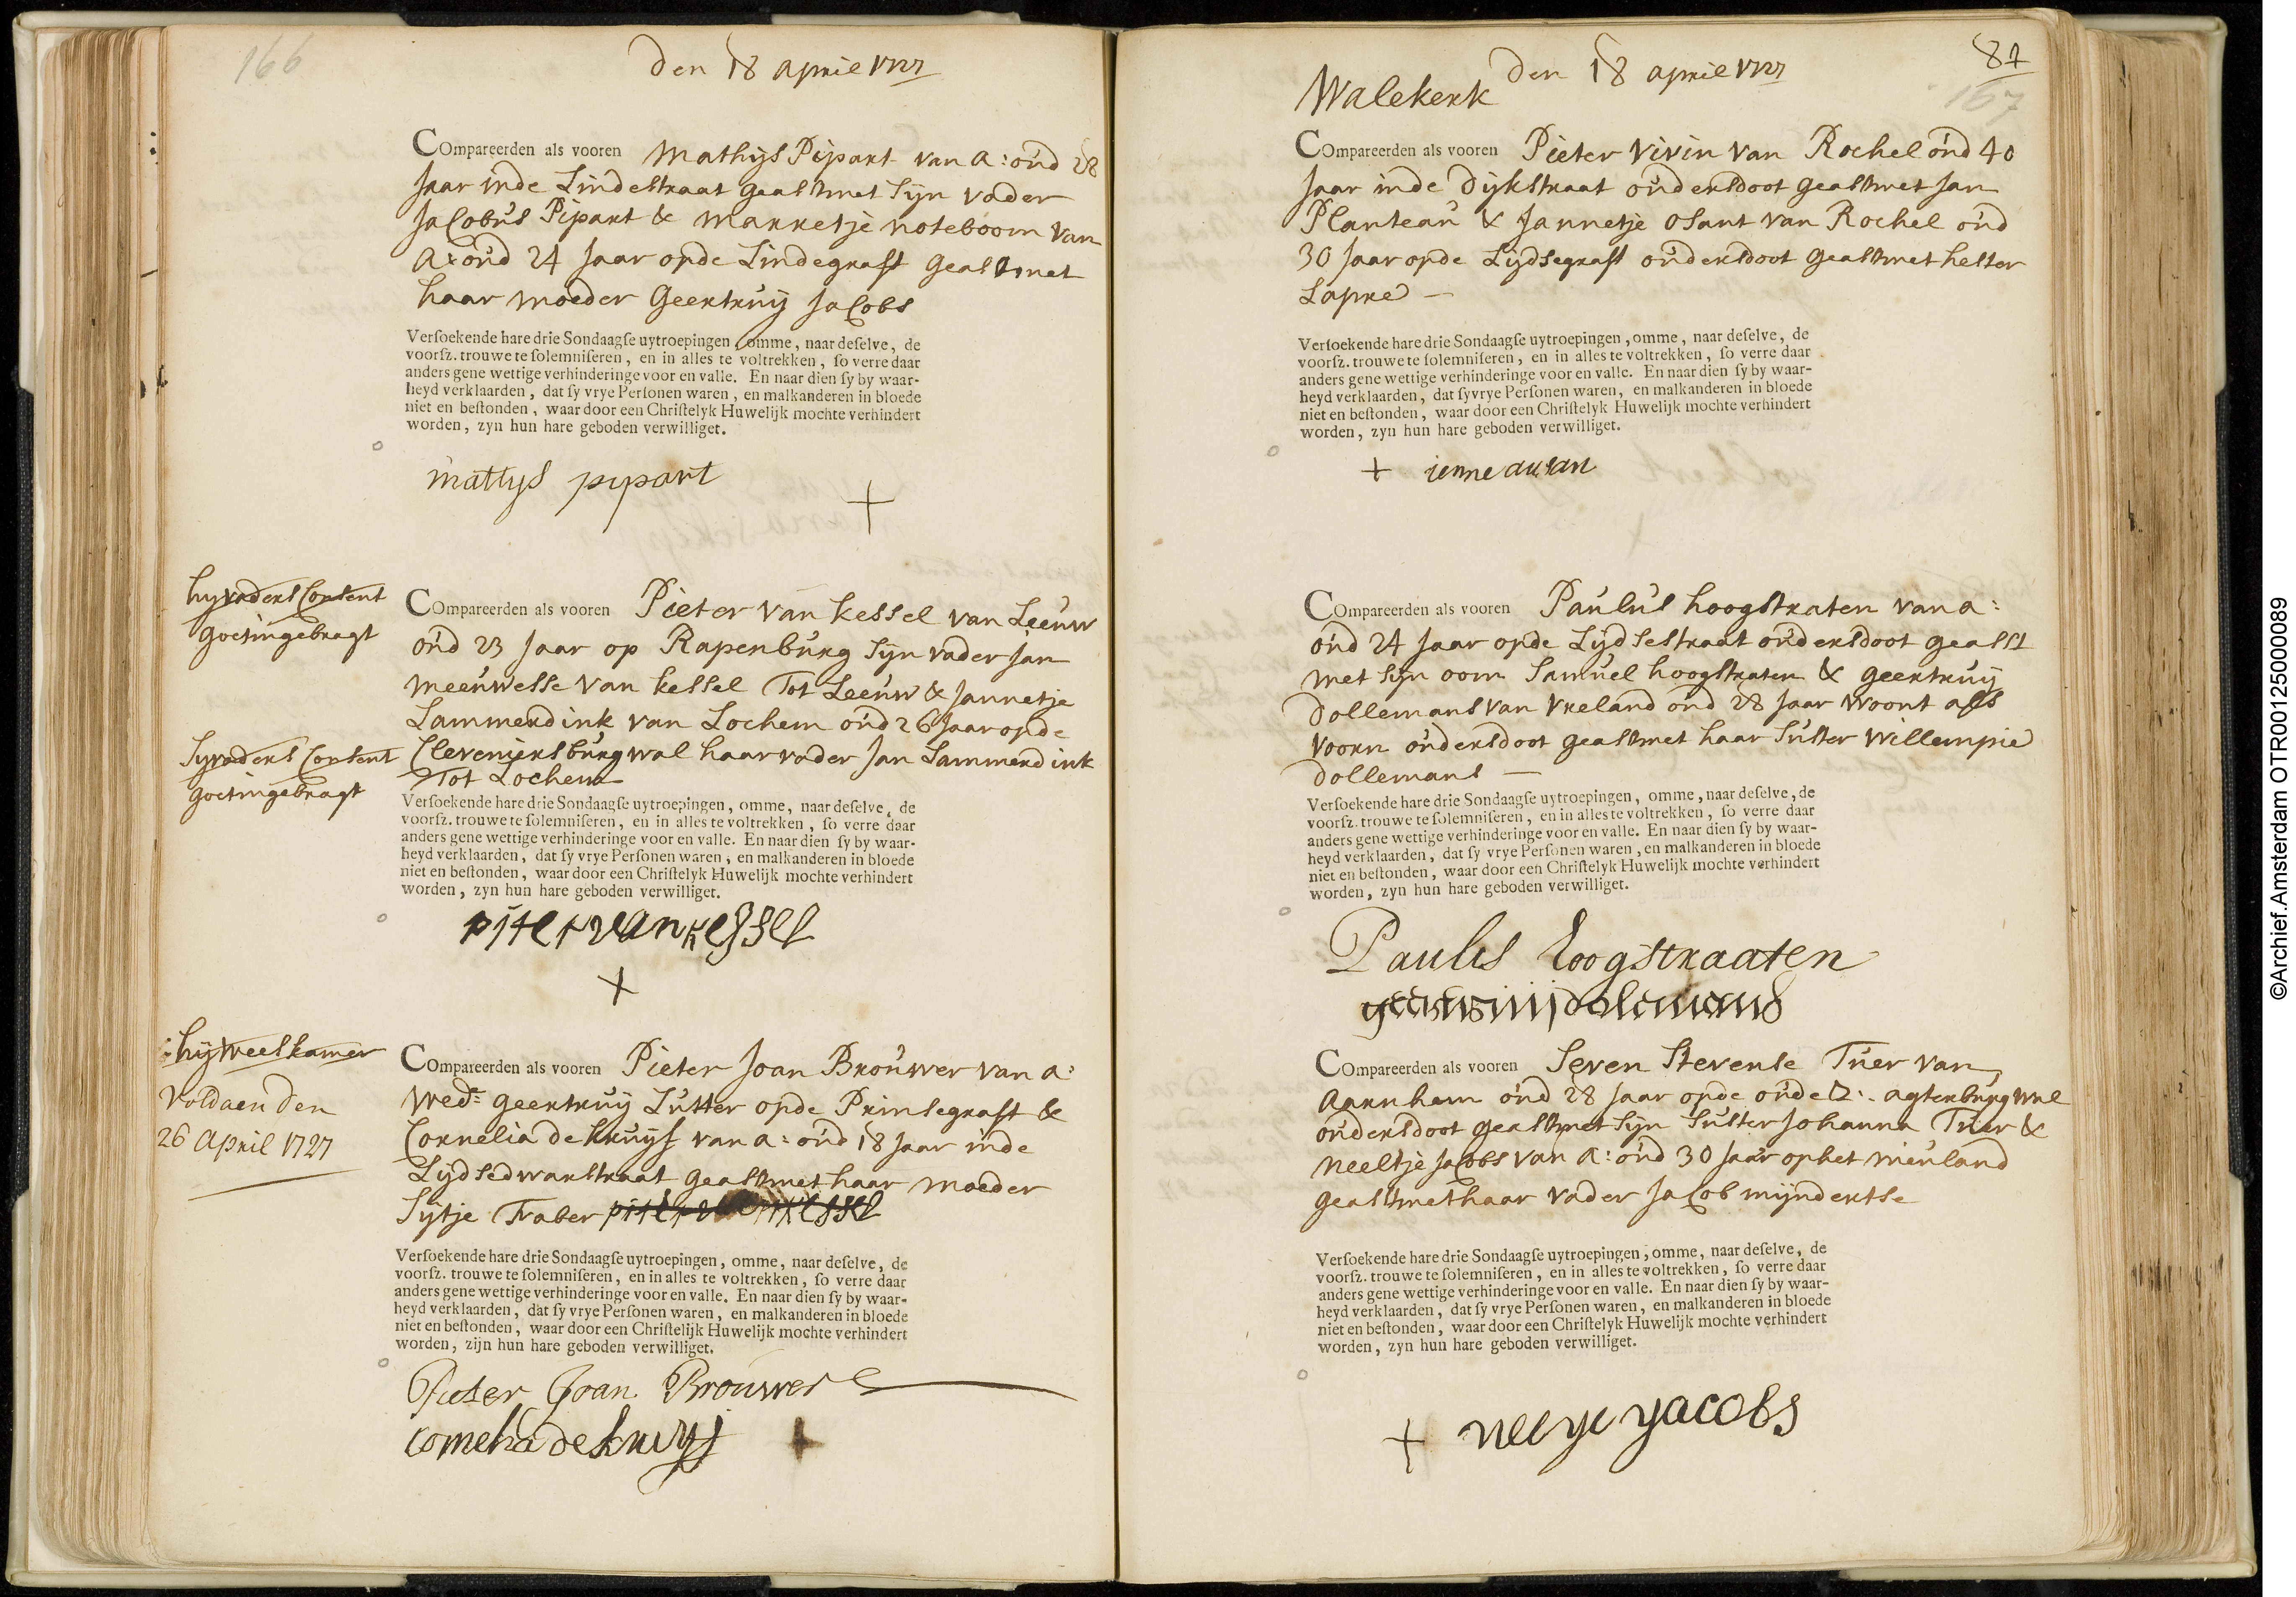 166
Den 18 april 1727
Compareerden als vooren Mathijs Pipart van A: oud 28
Jaar inde Lindestraat geast met Sijn vader
Jacobus Pipart & Marretje noteboom van
A: oud 24 Jaar opde Lindegraft geast met
haar moeder Geertruij Jacobs
Versoekende hare drie Sondaagse uytroepingen, omme, naar deselve, de
voorsz. trouwe te solemniseren, en in alles te voltrekken, so verre daar
anders gene wettige verhinderinge voor en valle. En naar dien sy by waar-
heyd verklaarden, dat sy vrye Personen waren, en malkanderen in bloede
niet en bestonden, waar door een Christelyk Huwelijk mochte verhindert
worden, zyn hun hare geboden verwilliget.
mattys pypart
+
hy vaders Consent
goet ingebragt
Compareerden als vooren Pieter van kessel van Leeuw
oud 23 Jaar op Rapenburg Sijn vader Jan
Meeuwesse van kessel Tot Leeuw & Jannetje
Lammerdink van Lochem oud 26 Jaar opde
Cleveniersburgwal haar vader Jan Lammerdink
Tot Lochem
Sy vaders Consent
goet ingebragt
Versoekende hare drie Sondaagse uytroepingen, omme, naar deselve, de
voorsz. trouwe te solemniseren, en in alles te voltrekken, so verre daar
anders gene wettige verhinderinge voor en valle. En naar dien sy by waar-
heyd verklaarden, dat sy vrye Personen waren, en malkanderen in bloede
niet en bestonden, waar door een Christelyk Huwelijk mochte verhindert
worden, zyn hun hare geboden verwilliget.
piter van kessel
+
hij weeskamer
Voldaen den
26 April 1727
Compareerden als vooren Pieter Joan Brouwer van A:
wedr geertruij Lutter opde Prinsegraft &
Cornelia de kruijs van A: oud 18 Jaar inde
Lijdsedwarstraat geast met haar moeder
Sijtje Traber piter van kessel
Versoekende hare drie Sondaagse uytroepingen, omme, naar deselve, de
voorsz. trouwe te solemniseren, en in alles te voltrekken, so verre daar
anders gene wettige verhinderinge voor en valle. En naar dien sy by waar-
heyd verklaarden, dat sy vrye Personen waren, en malkanderen in bloede
niet en bestonden, waar door een Christelijk Huwelijk mochte verhindert
worden, zijn hun hare geboden verwilliget.
Pieter Joan Brouwer
Cornelia de kruijs +
Den 18 april 1727
87
167
Walekerk
Compareerden als vooren Pieter Vivin van Rochel oud 40
Jaar inde Dijkstraat ouders doot geast met Jan
Planteau & Jannetje Osant van Rochel oud
30 Jaar opde Lijdsegraft ouders doot geast met hester
Lapre
Versoekende hare drie Sondaagse uytroepingen, omme, naar deselve, de
voorsz. trouwe te solemniseren, en in alles te voltrekken, so verre daar
anders gene wettige verhinderinge voor en valle. En naar dien sy by waar-
heyd verklaarden, dat sy vrye Personen waren, en malkanderen in bloede
niet en bestonden, waar door een Christelyk Huwelijk mochte verhindert
worden, zyn hun hare geboden verwilliget.
+ ienne
Compareerden als vooren Paulus hoogstraten van A:
oud 24 Jaar opde Lijdsestraat ouders doot geast
met Sijn oom Samuel hoogstraten & geertruij
Dollemans van Vreland oud 28 Jaar woont als
voorn ouders doot geast met haar Suster Willempie
Dollemans
Versoekende hare drie Sondaagse uytroepingen, omme, naar deselve, de
voorsz. trouwe te solemniseren, en in alles te voltrekken, so verre daar
anders gene wettige verhinderinge voor en valle. En naar dien sy by waar-
heyd verklaarden, dat sy vrye Personen waren, en malkanderen in bloede
niet en bestonden, waar door een Christelyk Huwelijk mochte verhindert
worden, zyn hun hare geboden verwilliget.
Paulus Hoogstraaten
Compareerden als vooren Seven Stevense Tuer van
Aarnhem oud 28 Jaar opde oude Z: agterburgwal
ouders doot geast met Sijn Suster Johanna Tuer &
Neeltje Jacobs van A: oud 30 Jaar op het nieuland
geast met haar vader Jacob mijndertse
Versoekende hare drie Sondaagse uytroepingen, omme, naar deselve, de
voorsz. trouwe te solemniseren, en in alles te voltrekken, so verre daar
anders gene wettige verhinderinge voor en valle. En naar dien sy by waar-
heyd verklaarden, dat sy vrye Personen waren, en malkanderen in bloede
niet en bestonden, waar door een Christelyk Huwelijk mochte verhindert
worden, zyn hun hare geboden verwilliget.
+ neeye yacobs
©Archief.Amsterdam OTR00125000089